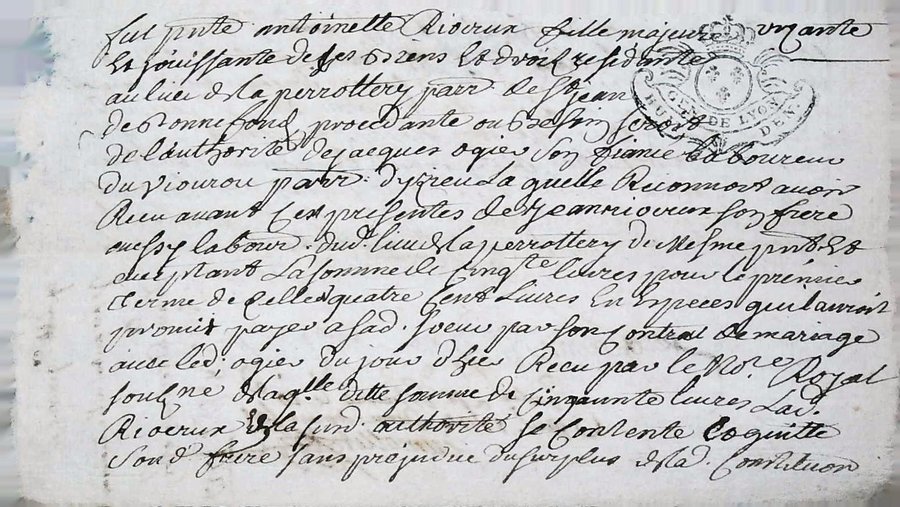 fut pnte antoinette Rioerux fille majeure uzante
Et jouissante de ses biens Et droits residante
au lieu de la perrottery parr. de St jean
de bonnefond procedante
de l'authorité de jacques ogier son fiancé laboureur
du viourou parr. d'yzieu Laquelle Reconnoit avoir
Recu avant Ces presentes de jean rioerux son frere
aussy labour. dud. lieu de la perrottery du mesme pnt Et
acceptant La somme de Cinqte livres pour le premier
terme de Celle de quatre Cent Livres En Especes qu'il auroit
promis payer a sad. soeur par son Contrat de mariage
avec led. ogier du jour d'hier Recu par le No.re Royal
sousne de laqlle ditte somme de Cinquante livres Lad.
Rioerux de la susd. authorité se Contente Et quitte
Sond. frere sans prejudice du surplus de lad. Constituon
GEN. DE LYON
HUIT DEN.